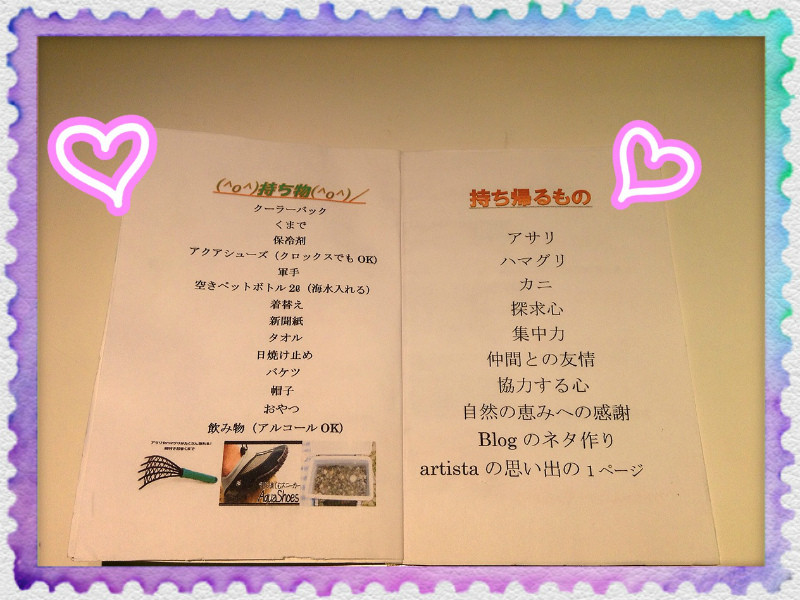 (^o^)持ち物(^o^)／
クーラーバック
くまで
保冷剤
アクアシューズ（クロックスでもOK)
軍手
空きペットボトル2ℓ（海水入れる）
着替え
新聞紙
タオル
日焼け止め
バケツ
帽子
おやつ
飲み物（アルコールOK）
AquaShoes
持ち帰るもの
アサリ
ハマグリ
カニ
探求心
集中力
仲間との友情
協力する心
自然の恵みへの感謝
Blogのネタ作り
artistaの思い出の1ページ